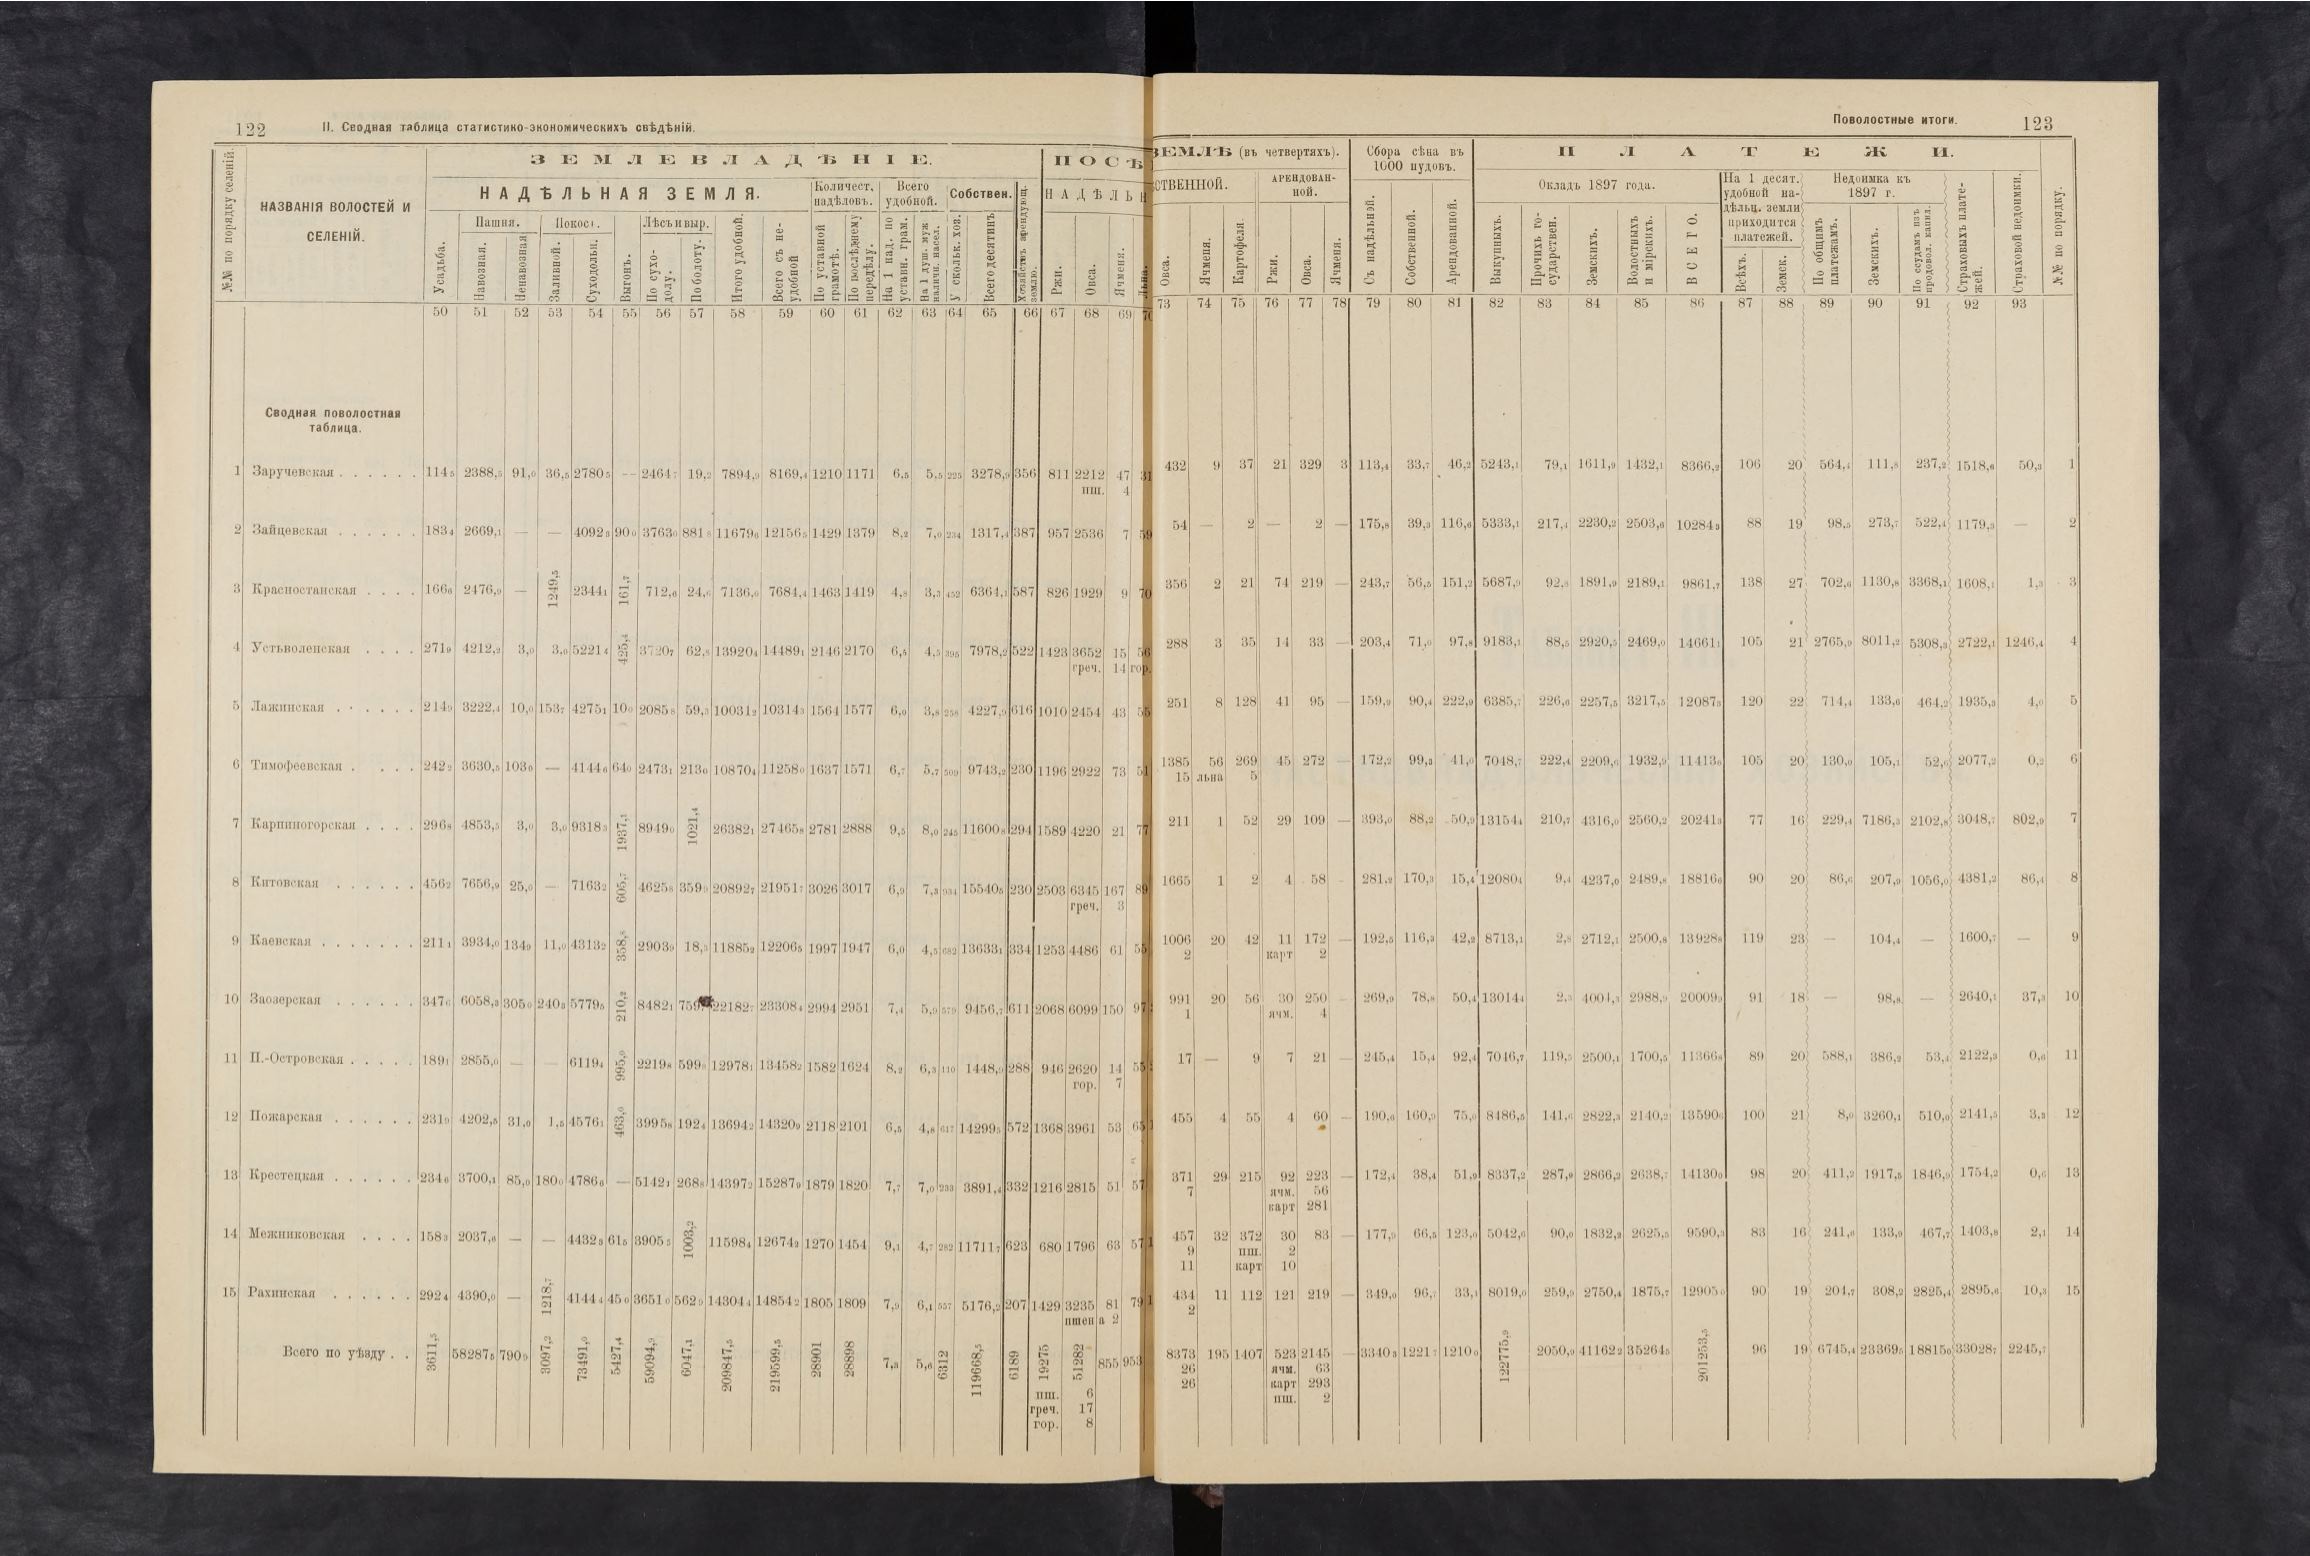 122 II. Сводная таблица статистико-экономическихъ свѣдѣній.
Поволостные итоги. 123
№№ по порядку селеній.
НАЗВАНІЯ ВОЛОСТЕЙ И СЕЛЕНІЙ.
ЗЕМЛЕВЛАДѢНІЕ.
НАДѢЛЬНАЯ ЗЕМЛЯ.
Усадьба.
Пашня.
Навозная.
Ненавозная
Покосы.
Заливной.
Суходольн.
Выгонъ.
Лѣсъ и выр.
По сухо-долу.
По болоту.
Итого удобной.
Всего съ не-удобной
Количест. надѣловъ.
По уставной грамотѣ.
По послѣднему передѣлу.
Всего удобной.
На 1 над. по уставн. грам.
На 1 душ. муж наличн. насел.
Собствен.
У скольк. хоз.
Всего десятинъ
Хозяйствъ арендующ. землю.
ПОСѢ
НАДѢЛЬН
Ржи.
Овса.
Ячменя.
Льна.
ЗЕМЛѢ (въ четвертяхъ).
СТВЕННОЙ.
Овса.
Ячменя.
Картофеля
АРЕНДОВАН-НОЙ.
Ржи.
Овса.
Ячменя.
Сбора сѣна въ 1000 пудовъ.
Съ надѣльной.
Собственной.
Арендованной.
ПЛАТЕЖИ.
Окладъ 1897 года.
Выкупныхъ.
Прочихъ го-сударствен.
Земскихъ.
Волостныхъ и мірскихъ.
ВСЕГО.
На 1 десят. удобной на-дѣльн. земли приходится платежей.
Всѣхъ.
Земск.
Недоимка къ 1897 г.
По общимъ платежамъ.
Земскихъ.
По ссудамъ изъ продовол. капил.
Страховыхъ плате-жей.
Страховой недоимки.
№№ по порядку.
50 51 52 53 54 55 56 57 58 59 60 61 62 63 64 65 66 67 68 69 70
73 74 75 76 77 78 79 80 81 82 83 84 85 86 87 88 89 90 91 92 93
Сводная поволостная
таблица.
1 Заручевская 114,5 2388,5 91,0 36,5 2780,5 — 2464,7 19,2 7894,9 8169,4 1210 1171 6,5 5,5 225 3278,9 356 811 2212 47 31
пш. 4
432 9 37 21 329 3 113,4 33,7 46,2 5243,1 79,1 1611,9 1432,1 8366,2 106 20 564,4 111,8 237,2 1518,6 50,3 1
2 Зайцевская 183,4 2669,1 — — 4092,8 90,0 3763,0 881,8 11679,6 12156,5 1429 1379 8,2 7,0 234 1317,4 387 957 2536 7 59
54 — 2 — 2 — 175,8 39,3 116,6 5333,1 217,4 2230,2 2503,6 10284,3 88 19 98,5 273,7 522,4 1179,3 — 2
3 Красностанская 166,6 2476,9 — 1249,5 2344,1 161,7 712,6 24,6 7136,0 7684,4 1463 1419 4,8 3,3 452 6364,1 587 826 1929 9 70
356 2 21 74 219 — 243,7 56,5 151,2 5687,9 92,8 1891,9 2189,1 9861,7 138 27 702,6 1130,8 3368,1 1608,1 1,3 3
4 Устьволенская 271,9 4212,2 3,0 3,0 5221,4 425,4 3720,7 62,8 13920,4 14489,1 2146 2170 6,5 4,5 395 7978,2 522 1423 3652 15 56
греч. 14 гор.
288 3 35 14 33 — 203,4 71,0 97,8 9183,1 88,5 2920,5 2469,0 14661,1 105 21 2765,9 8011,2 5308,3 2722,1 1246,4 4
5 Лажинская 214,9 3222,4 10,0 153,7 4275,1 10,0 2085,8 59,3 10031,2 10314,3 1564 1577 6,0 3,8 258 4227,9 616 1010 2454 43 55
251 8 128 41 95 — 159,9 90,4 222,9 6385,7 226,6 2257,5 3217,5 12087,3 120 22 714,4 133,6 464,2 1935,3 4,0 5
6 Тимофеевская 242,2 3630,5 103,0 — 4144,6 64,0 2473,1 213,0 10870,4 11258,0 1637 1571 6,7 5,7 509 9743,2 230 1196 2922 73 51
1385 56 269 45 272 — 172,2 99,3 41,0 7048,7 222,4 2209,6 1932,9 11413,6 105 20 130,0 105,1 52,6 2077,2 0,2 6
15 льна 5
7 Карпиногорская 296,8 4853,5 3,0 3,0 9318,3 1937,1 8949,0 1021,4 26382,1 27465,8 2781 2888 9,5 8,0 245 11600,8 294 1589 4220 21 77
211 1 52 29 109 — 393,0 88,2 50,9 13154,4 210,7 4316,0 2560,2 20241,3 77 16 229,4 7186,3 2102,8 3048,7 802,9 7
8 Китовская 456,2 7656,9 25,0 — 7163,2 605,7 4625,8 359,9 20892,7 21951,7 3026 3017 6,9 7,3 934 15540,5 230 2503 6345 167 89
греч. 3
1665 1 2 4 58 281,2 170,3 15,4 12080,4 9,4 4237,0 2489,8 18816,6 90 20 86,6 207,9 1056,0 4381,2 86,4 8
9 Каевская 211,1 3934,0 134,9 11,0 4313,2 358,8 2903,9 18,3 11885,2 12206,5 1997 1947 6,0 4,5 682 13633,1 334 1253 4486 61 55
1006 20 42 11 172 — 192,5 116,3 42,2 8713,1 2,8 2712,1 2500,8 13928,8 119 23 — 104,4 — 1600,7 — 9
2 карт 2
10 Заозерская 347,6 6058,3 305,0 240,3 5779,5 210,2 8482,1 759, 22182,7 23308,4 2994 2951 7,4 5,9 579 9456,7 611 2068 6099 150 97
991 20 56 30 250 — 269,9 78,8 50,4 13014,4 2,3 4004,3 2988,9 20009,9 91 18 — 98,8 — 2640,1 37,3 10
1 ячм. 4
11 П.-Островская 189,1 2855,0 — — 6119,4 995,0 2219,8 599,8 12978,1 13458,2 1582 1624 8,2 6,3 110 1448,9 288 946 2620 14 55
гор. 7
17 — 9 7 21 — 245,4 15,4 92,4 7046,7 119,5 2500,1 1700,5 11366,8 89 20 588,1 386,2 53,4 2122,3 0,6 11
12 Пожарская 231,9 4202,5 31,0 1,5 4576,1 463,0 3995,8 192,4 13694,2 14320,9 2118 2101 6,5 4,8 617 14299,5 572 1368 3961 53 65
455 4 55 4 60 — 190,6 160,9 75,0 8486,5 141,6 2822,3 2140,2 13590,6 100 21 8,0 3260,1 510,0 2141,5 3,3 12
13 Крестецкая 234,6 3700,1 85,0 180,0 4786,6 — 5142,1 268,8 14397,2 15287,9 1879 1820 7,7 7,0 233 3891,4 332 1216 2815 51 57
371 29 215 92 223 — 172,4 38,4 51,9 8337,2 287,9 2866,2 2638,7 14130,0 98 20 411,2 1917,5 1846,9 1754,2 0,6 13
7 ячм. 56
карт 281
14 Межниковская 158,3 2037,6 — — 4432,8 61,5 3905,5 1003,2 11598,4 12674,2 1270 1454 9,1 4,7 282 11711,7 623 680 1796 63 57
457 32 372 30 83 — 177,9 66,5 123,0 5042,6 90,0 1832,2 2625,5 9590,3 83 16 241,6 133,9 467,7 1403,8 2,1 14
9 пш. 2
11 карт 10
15 Рахинская 292,4 4390,0 — 1218,7 4144,4 45,0 3651,0 562,9 14304,4 14854,2 1805 1809 7,9 6,1 557 5176,2 207 1429 3235 81 79
пшена 2
434 11 112 121 219 — 349,0 96,7 33,1 8019,0 259,9 2750,4 1875,7 12905,0 90 19 204,7 308,2 2825,4 2895,6 10,3 15
2
Всего по уѣзду 3611,5 58287,5 790,9 3097,2 73491,0 5427,4 59094,9 6047,1 209847,5 219599,5 28901 28898 7,3 5,6 6312 119668,5 6189 19275 51282 855 953
пш. 6
греч. 17
гор. 8
8373 195 1407 523 2145 — 3340,3 1221,7 1210,0 122775,9 2050,9 41162,2 35264,5 201253,5 96 19 6745,4 23369,5 18815,0 33028,7 2245,7
26 ячм. 63
26 карт 293
пш. 2